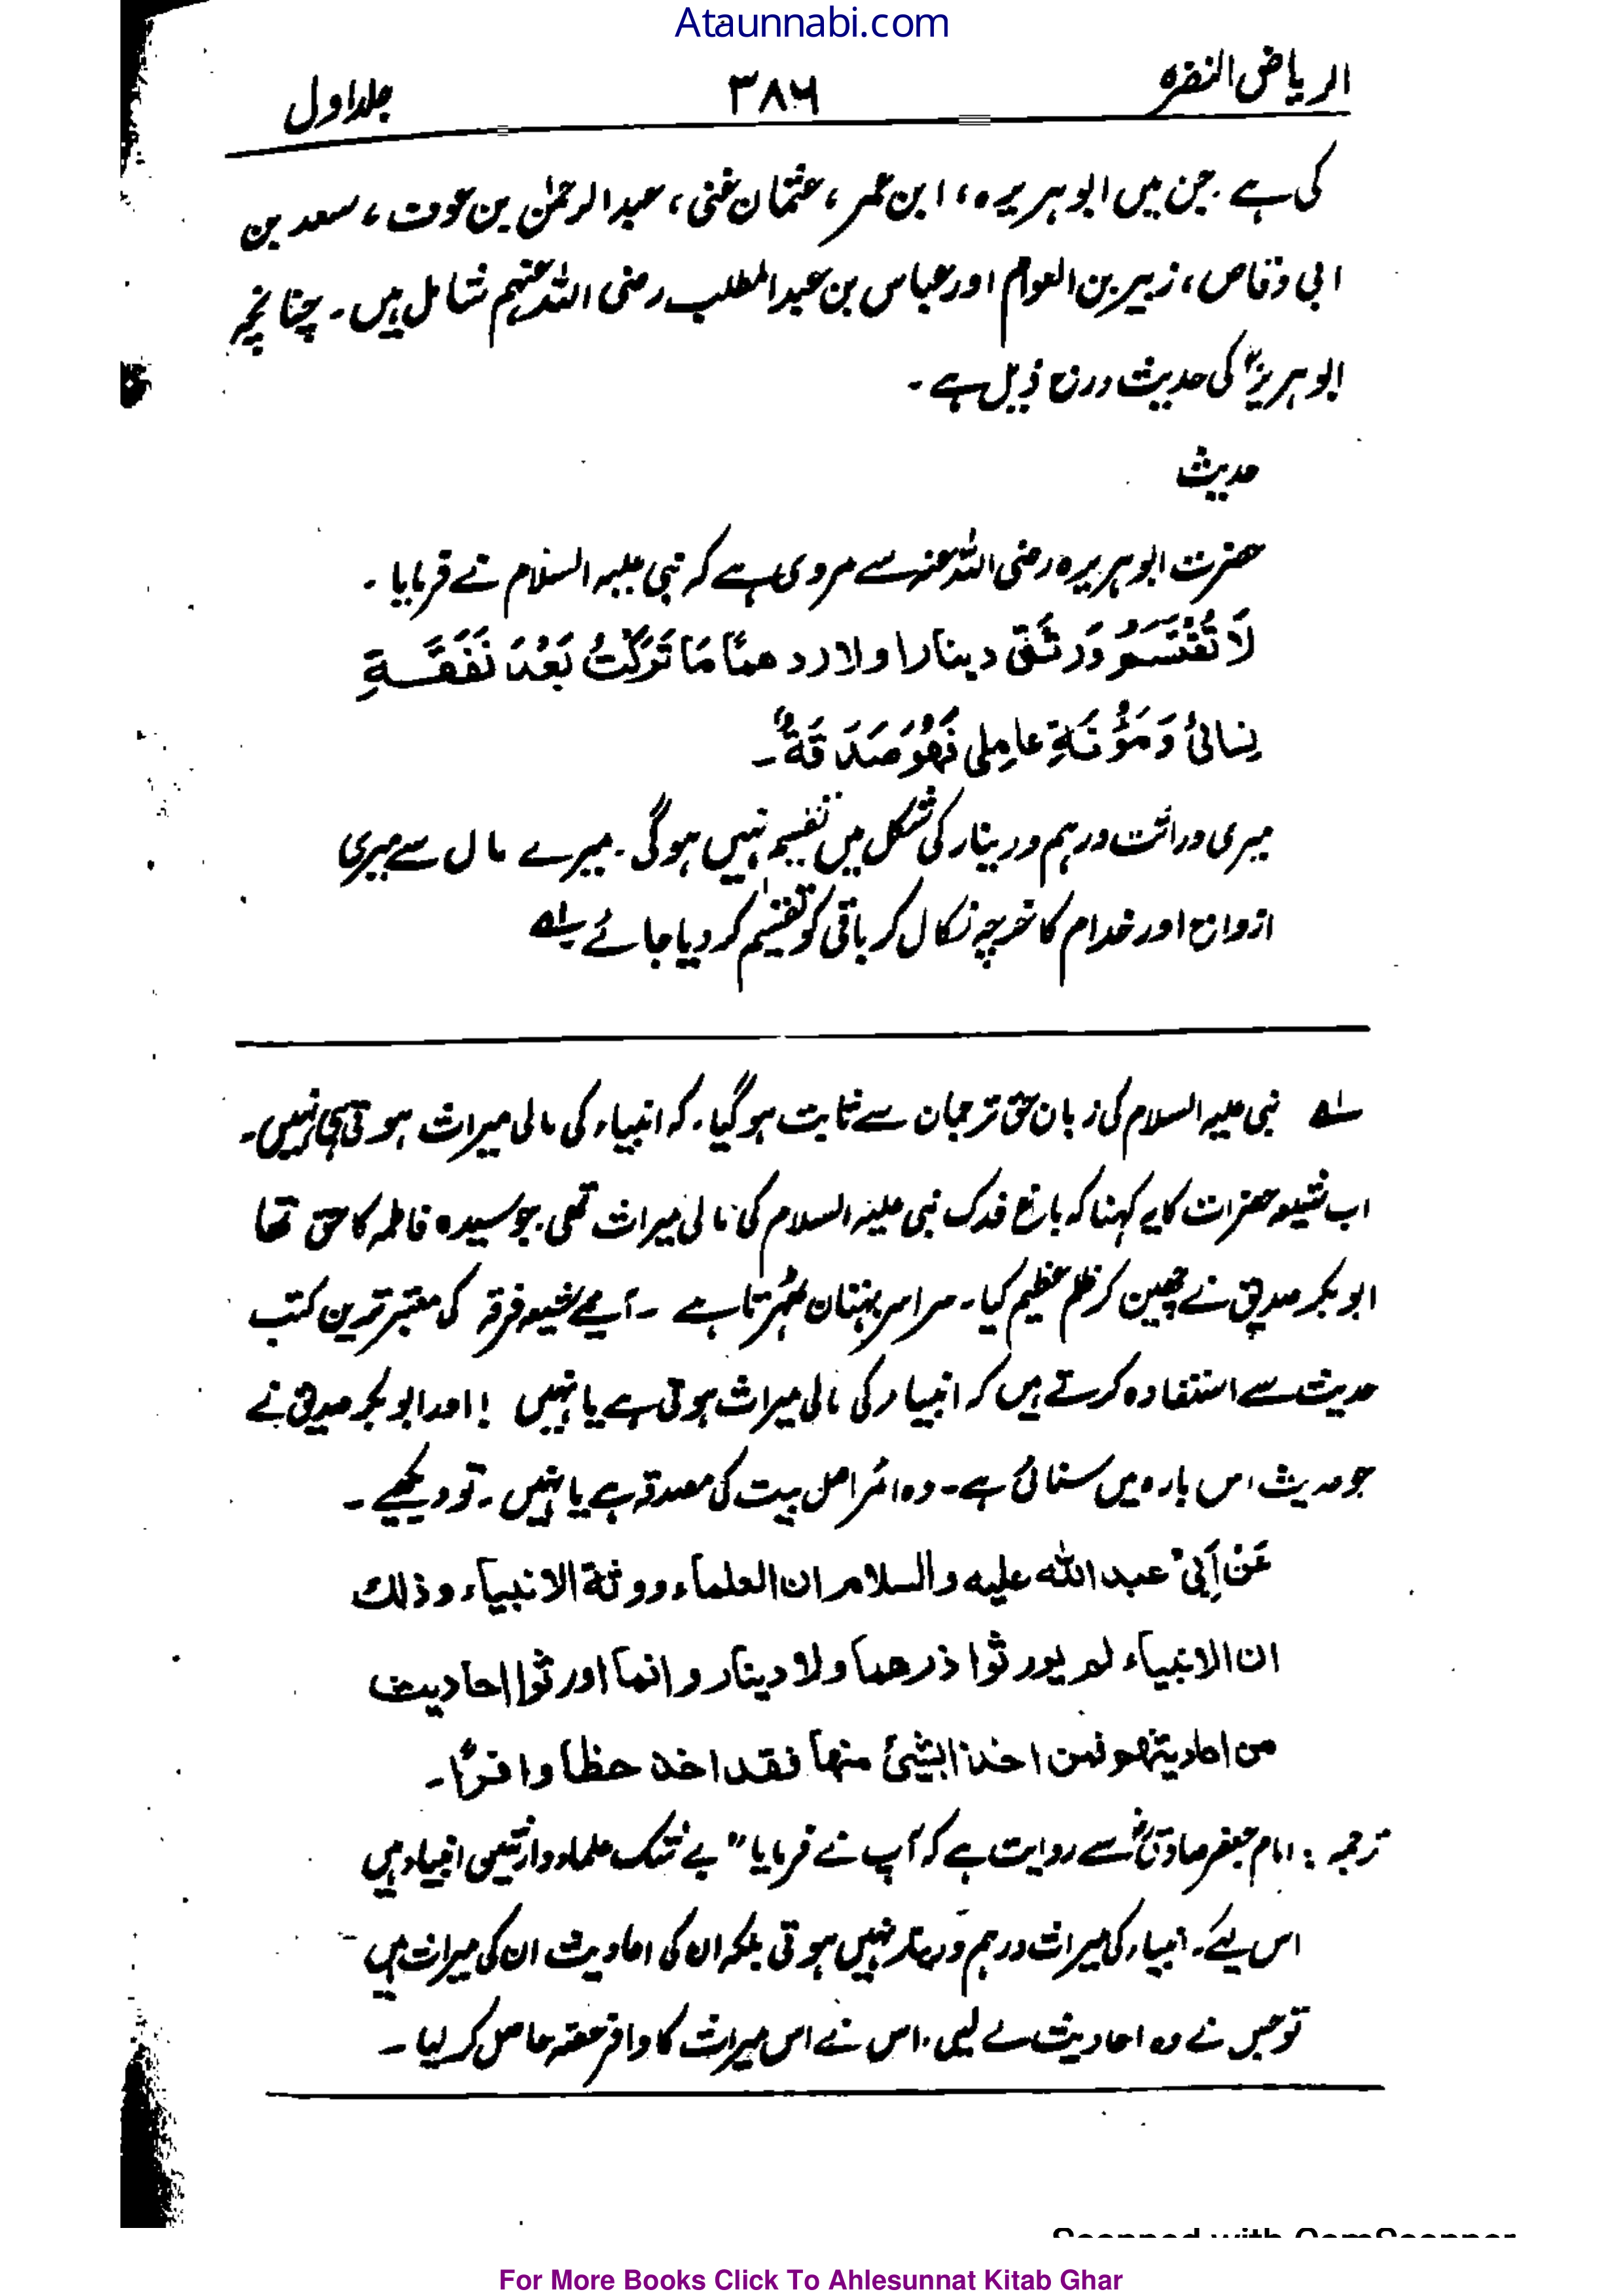 Ataunnabi.com
الریاض النضرہ ۳۸۶ جلد اول
کی ہے . جن میں ابو ہریرہ ، ابن عمر ، عثمان غنی ، عبد الرحمٰن بن عوف ، سعد بن
ابی وقاص ، زبیر بن العوام اور عباس بن عبد المطلب رضی اللہ عنہم شامل ہیں ۔ چنانچہ
ابو ہریرہؓ کی حدیث درج ذیل ہے ۔
حدیث
حضرت ابو ہریرہ رضی اللہ عنہ سے مروی ہے کہ نبی علیہ السلام نے فرمایا ۔
لَا تُقْتَسَمُ وَرَثَتِی دینارا ولا درهمًا مَا تَرَكْتُ بَعْدَ نَفَقَةِ
نِسائیْ وَمَؤُنَةِ عامِلی فَهُوَ صَدَقَةٌ ۔
میری وراثت درہم و دینار کی شکل میں تقسیم نہیں ہو گی . میرے مال سے میری
ازواج اور خدام کا خرچہ نکال کر باقی کو تقسیم کر دیا جائے لہ
لہ نبی علیہ السلام کی زبان حق ترجمان سے ثابت ہو گیا . کہ انبیاء کی مالی میراث ہوتی ہی نہیں ۔
اب شیعہ حضرات کا یہ کہنا کہ باغ فدک نبی علیہ السلام کی مالی میراث تھی . جو سیدہ فاطمہ کا حق تھا
ابو بکر صدیق نے چھین کر ظلم عظیم کیا ۔ سراسر بہتان ٹھہرتا ہے ۔ آیئے شیعہ فرقہ کی معتبر ترین کتب
حدیث سے استفادہ کرتے ہیں کہ انبیاء کی مالی میراث ہوتی ہے یا نہیں ! اور ابو بکر صدیق نے
جو حدیث اس بارہ میں سنائی ہے ۔ وہ ائمہ اہل بیت کی مصدقہ ہے یا نہیں ۔ تو دیکھیے ۔
عَنْ اَبِیْ عبد الله علیه والسلام ان العلماء ورثة الانبیاء وذلك
ان الانبیاء لم یورثوا درهما ولا دینار وانما اورثوا احادیث
من احادیثهم فمن اخذ بشیئ منها فقد اخذ حظا وافرًا ۔
ترجمہ : امام جعفر صادقؓ سے روایت ہے کہ آپ نے فرمایا " بے شک علماء وارثین انبیاء ہیں
اس لیے کہ انبیاء کی میراث درہم و دینار نہیں ہوتی بلکہ ان کی احادیث ان کی میراث ہیں
تو جس نے وہ احادیث لے لیں . اس نے اس میراث کا وافر حصّہ حاصل کر لیا ۔
For More Books Click To Ahlesunnat Kitab Ghar